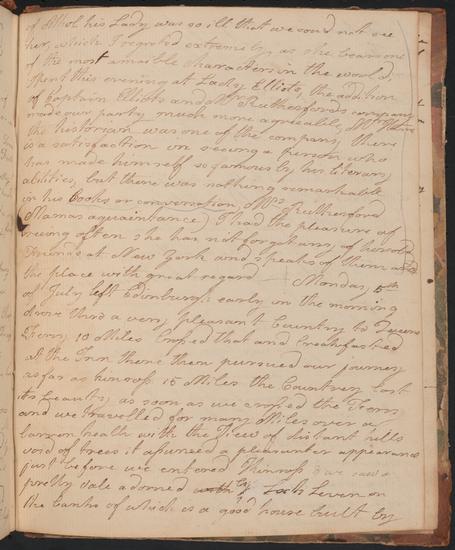 of Athol his Lady was so ill that we could not see
her, which I regreted extremely, as she bears one
of the most amiable characters in the world,
spent this evening at Lady Elliots, the addition
of Captain Elliots and Mrs Rutherfords company
made our party much more agreeable, Mr Hume
the historian was one of the company, there
is a satisfaction in seeing a person who
has made himself so famous by his literary
abilities, but there was nothing remarkable
in his Looks or conversation, Mrs Rutherford
(Mamas acquaintance) I had the pleasure of
seeing often she has not forgot any of her old
Friends at New York and speaks of them and
the place with great regard Monday, 5th
of July left Edinburgh early in the morning
drove thro a very pleasant Country to Queens
Ferry 10 Miles Crossed that and Breakfasted
at the Inn there then pursued our journey
as far as Kinross 15 Miles the Country lost
its beauty as soon as we crossed the Ferry
and we travelled for many Miles over a
barren heath with the View of distant hills
void of trees it assumed a pleasanter appearance
just before we entered Kinross & we saw a
pretty vale adorned with by Loch Leven on
the banks of which is a good house built by